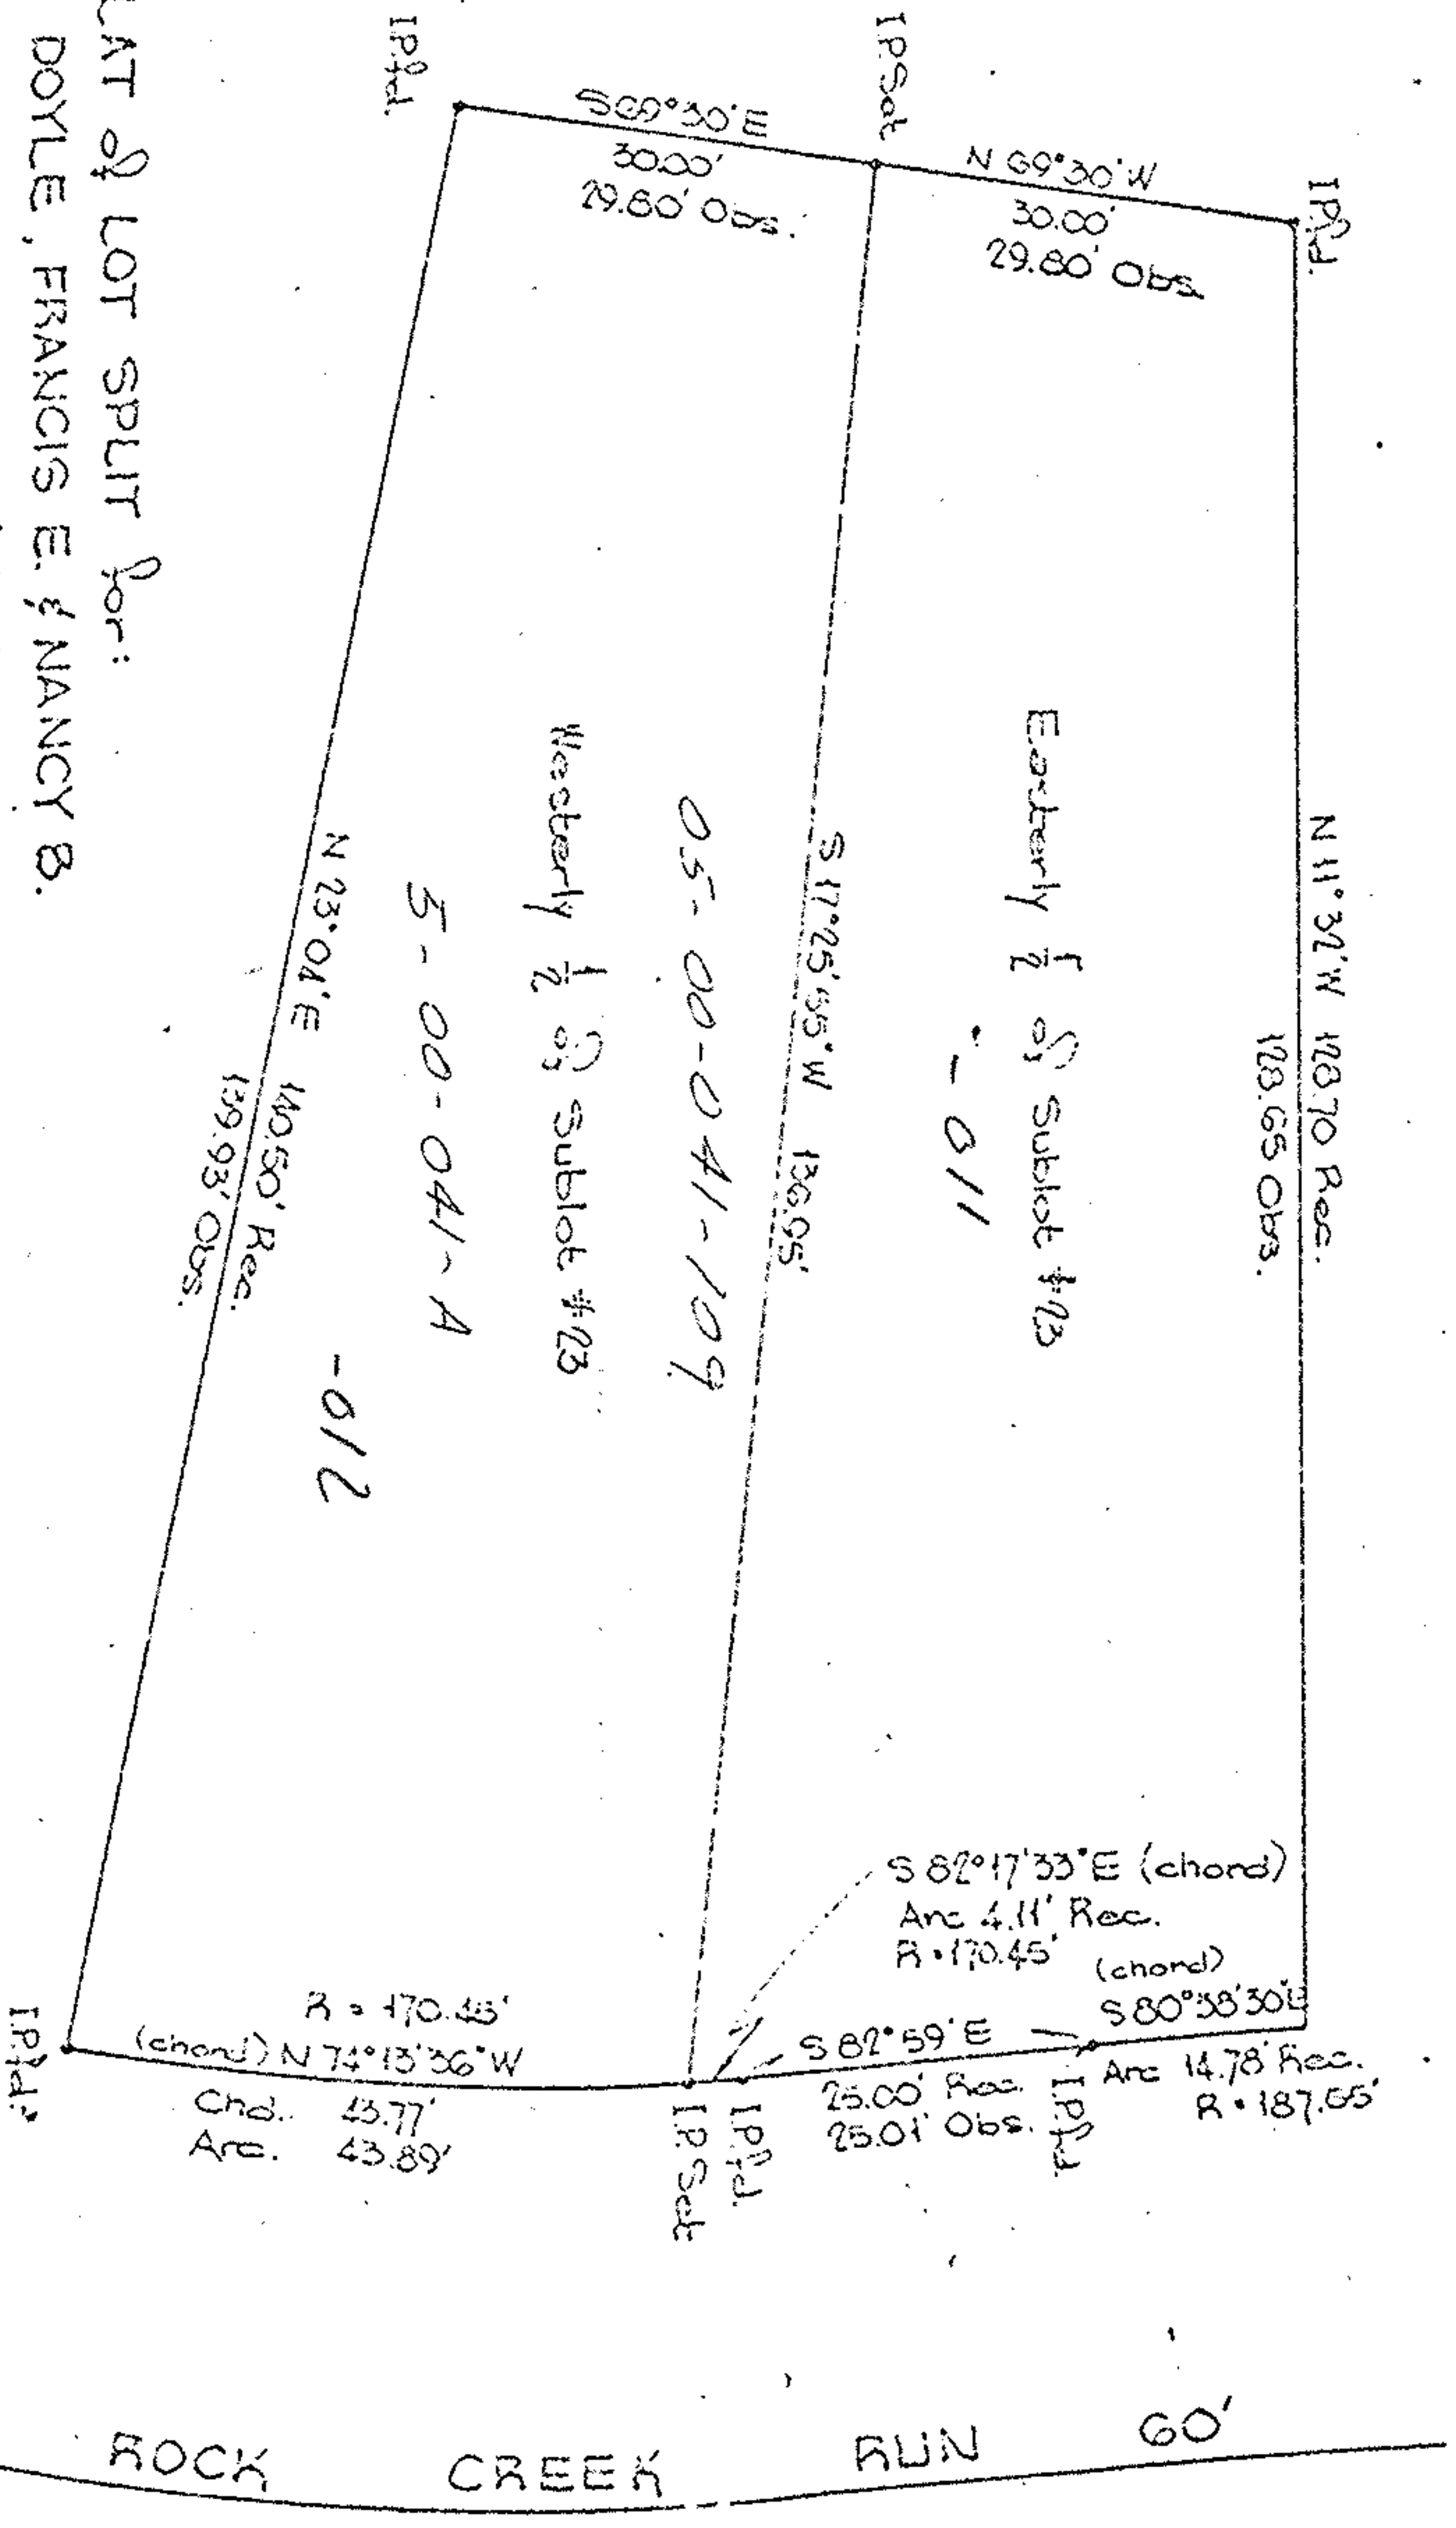 PLAT of LOT SPLIT for:
DOYLE, FRANCIS E. & NANCY B.
I.P.fd.
S 69°30' E
30.00'
29.80' Obs.
I.P.Set
N 69°30' W
30.00'
29.80' Obs.
I.P.fd.
N 11°32' W 128.70 Rec.
128.65 Obs.
Easterly 1/2 of Sublot #23
-011
S 17°25'55" W 136.95'
05-00-041-109
Westerly 1/2 of Sublot #23
5-00-041-A
N 23°04' E 140.50' Rec.
139.93' Obs.
-012
S 82°17'33" E (chord)
Arc 4.11' Rec.
R = 170.45'
(chord)
S 80°38'30" E
Arc 14.78' Rec.
R = 187.65'
S 82°59' E
25.00' Rec.
25.01' Obs.
I.P.fd.
I.P.fd.
I.P.Set
R = 170.45'
(chord) N 74°13'36" W
Chd. 43.77'
Arc. 43.89'
I.P.fd.
ROCK CREEK RUN 60'